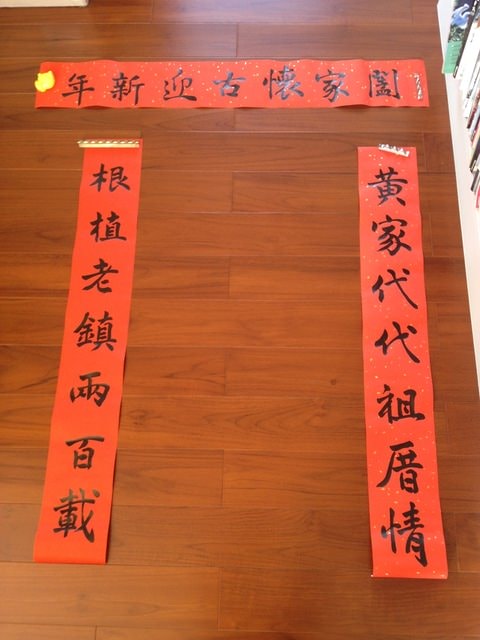 闔家懷古迎新年
黃家代代祖厝情
根植老鎮兩百載